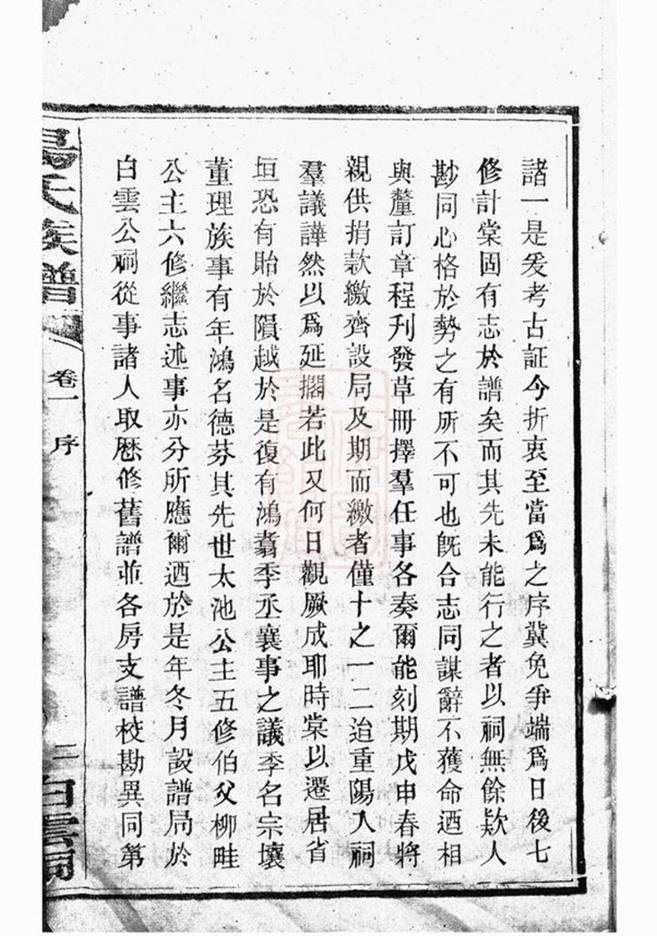 諸一是爰考古証今折衷至當爲之序冀免爭端爲日後七
修計棠固有志於譜矣而其先未能行之者以祠無餘欵人
尠同心格於勢之有所不可也旣合志同謀辭不獲命迺相
與釐訂章程刋發草冊擇羣任事各奏爾能刻期戊申春將
親供捐款繳齊設局及期而繳者僅十之一二迨重陽入祠
羣議譁然以爲延擱若此又何日觀厥成耶時棠以遷居省
垣恐有貽於隕越於是復有鴻翥季丞襄事之議季名宗壤
董理族事有年鴻名德芬其先世太池公主五修伯父柳畦
公主六修繼志述事亦分所應爾迺於是年冬月設譜局於
白雲公祠從事諸人取歷修舊譜並各房支譜校勘異同第
氏族譜
卷一 序
二
白雲祠